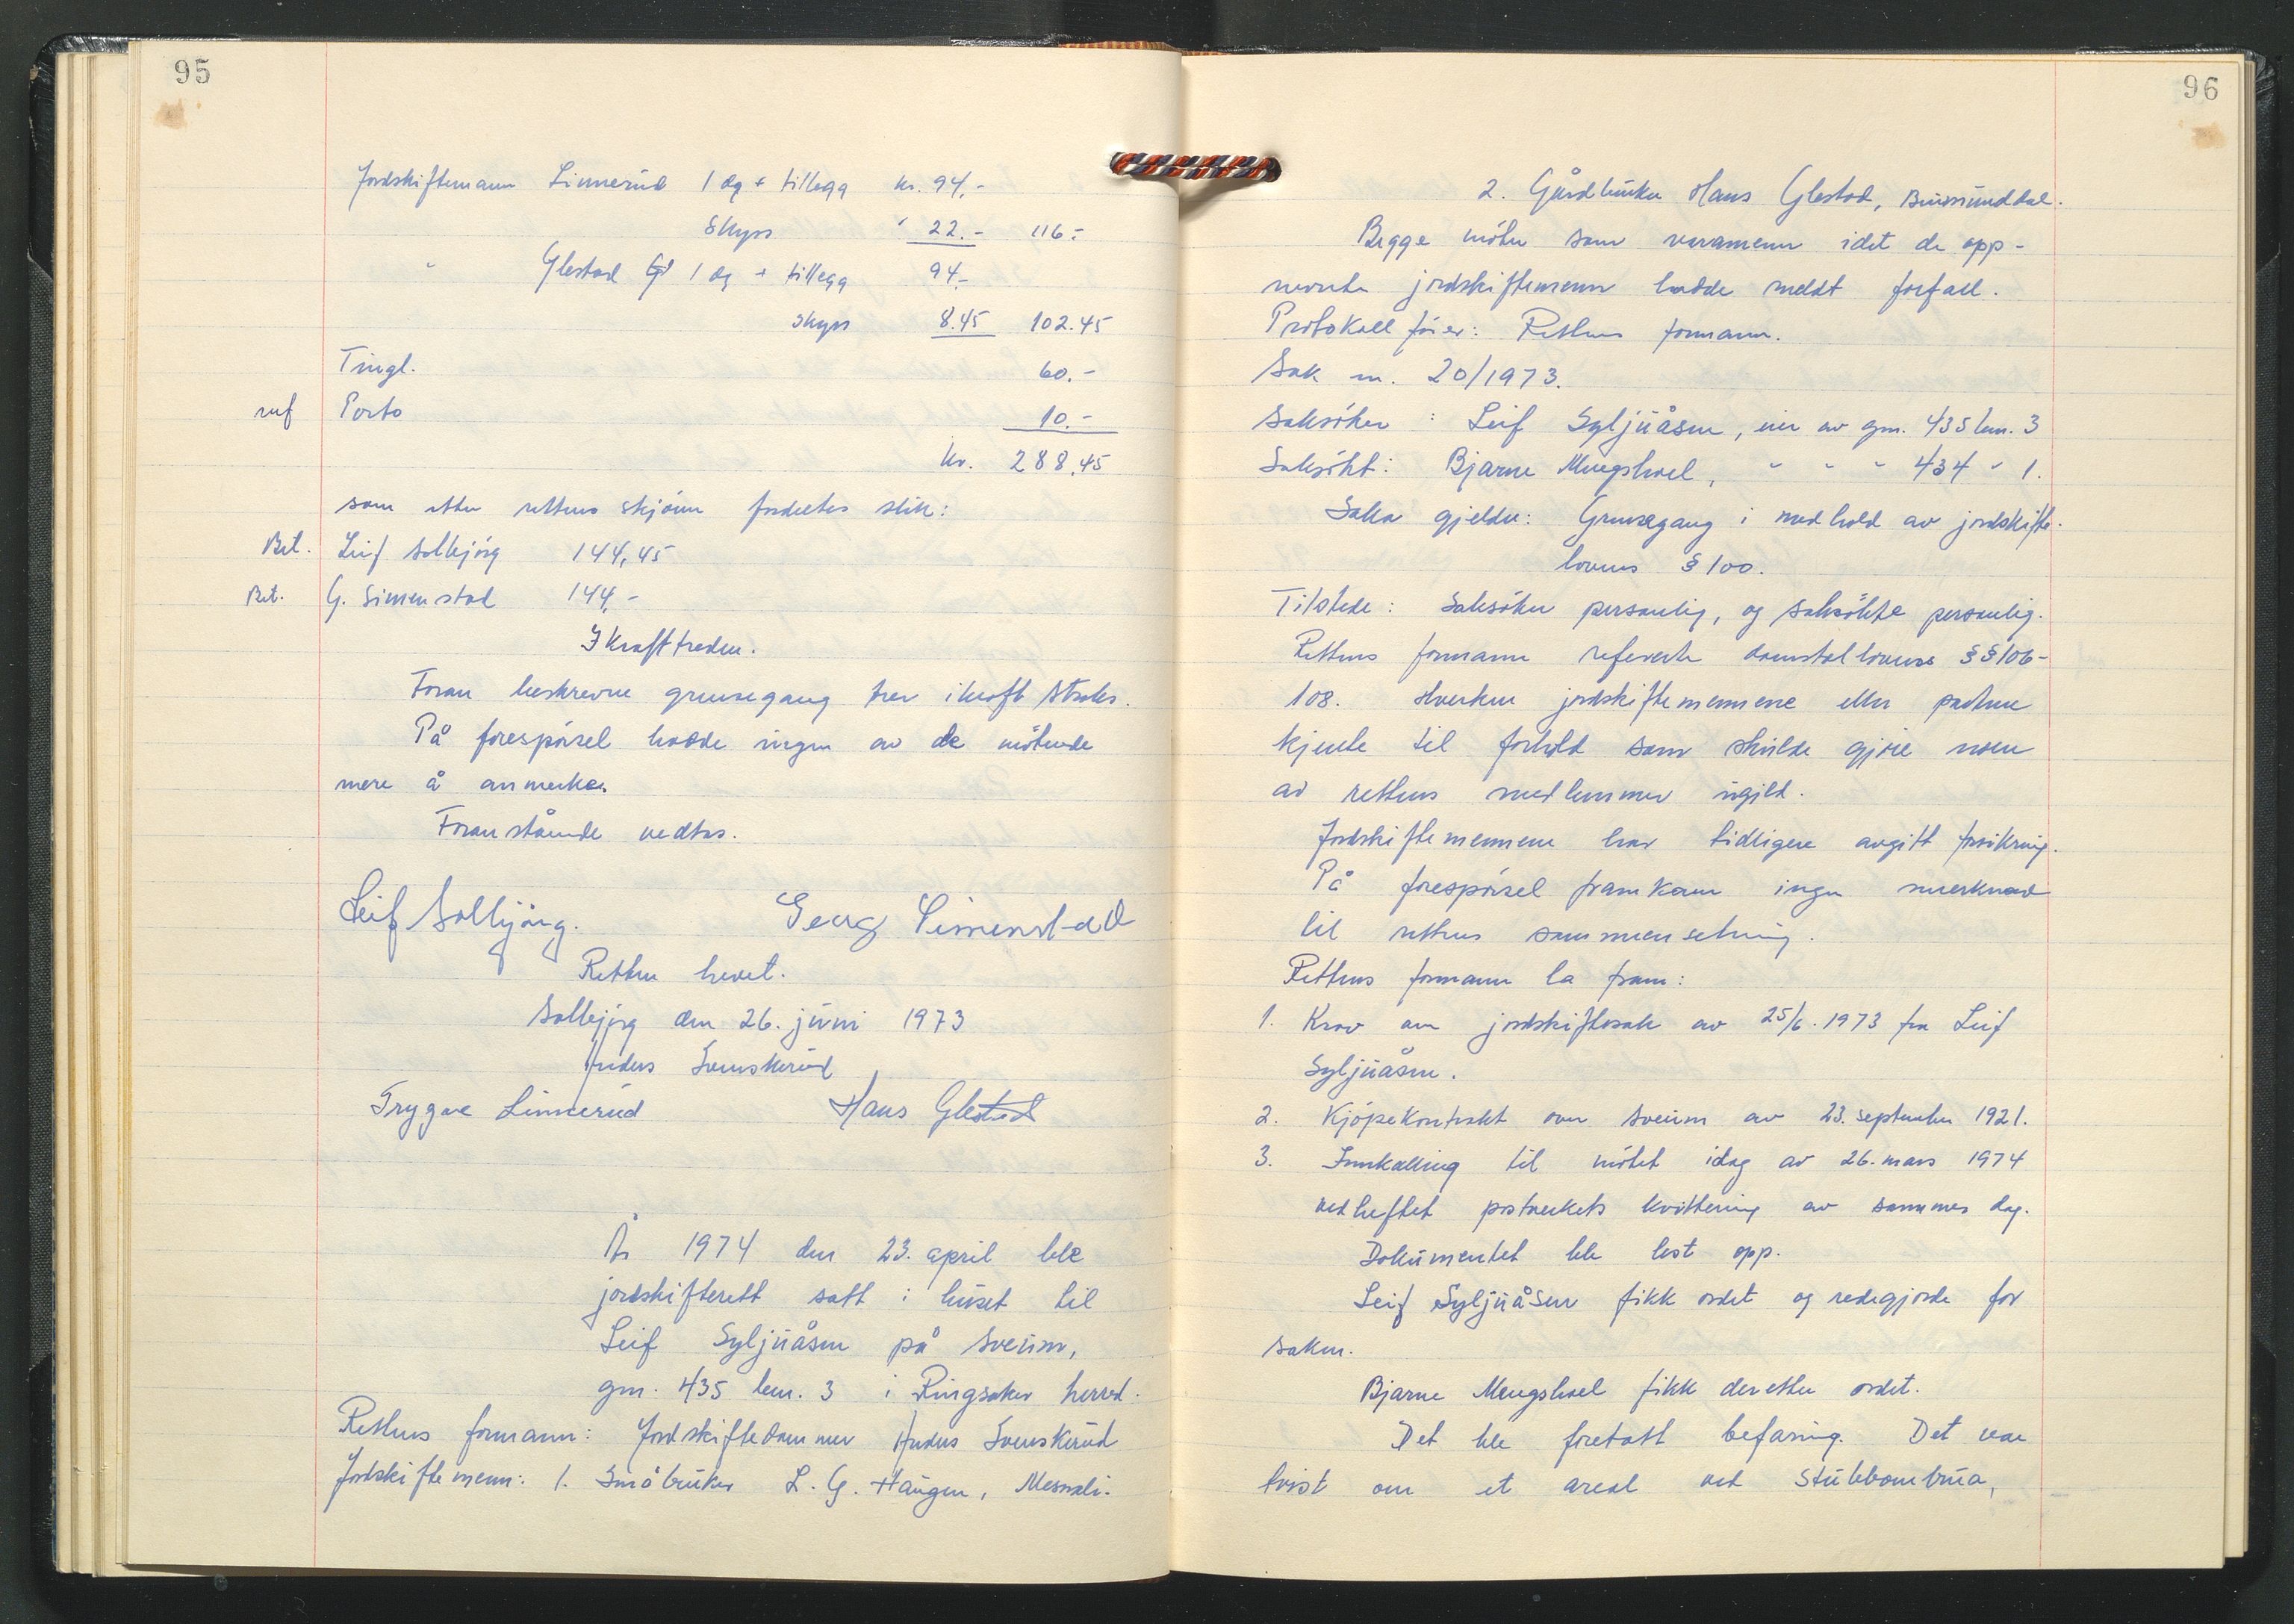 95
Jordskiftemann Linnerud 1 dg + tillegg kr. 94.-
Skyss " 22.- 116.-
" Glestad 1 dg + tillegg 94.-
Skyss 8.45 102.45
Tingl. 60.-
Porto 10.-
kr. 288.45
som etter rettens skjönn fordeles slik:
Bet. Leif Solbjörg 144,45
Bet. G. Simenstad 144,-
Ikrafttreden.
Foran beskrevne grensegang trer i kraft straks.
På forespörsel hadde ingen av de mötende
mere å anmerke.
Foranstående vedtas.
Leif Solbjörg. Georg Simenstad
Retten hevet.
Solbjörg den 26. juni 1973
Anders Svenskerud
Trygve Linnerud Hans Glestad
År 1974 den 23. april ble
jordskifterett satt i huset til
Leif Syljuåsen på Sveum,
gnr. 435 bnr. 3 i Ringsaker herred.
Rettens formann: Jordskiftedommer Anders Svenskerud
Jordskiftemenn: 1. Småbruker L. G. Haugen, Mesnali.
96
2. Gårdbruker Hans Glestad, Brumunddal.
Begge möter som varamenn idet de opp-
nevnte jordskiftemenn hadde meldt forfall.
Protokollförer: Rettens formann.
Sak nr. 20/1973.
Saksöker: Leif Syljuåsen, eier av gnr. 435 bnr. 3
Saksökt: Bjarne Mengshoel, " " " 434 " 1.
Saken gjelder: Grensegang i medhold av jordskifte-
lovens § 100.
Tilstede: Saksöker personlig, og saksökte personlig.
Rettens formann refererte domstollovens §§ 106-
108. Hverken jordskiftemennene eller partene
kjente til forhold som skulde gjöre noen
av rettens medlemmer ugild.
Jordskiftemennene har tidligere avgitt forsikring.
På forespörsel framkom ingen merknad
til rettens sammensetning.
Rettens formann la fram:
1. Krav om jordskiftesak av 25/6. 1973 fra Leif
Syljuåsen.
2. Kjöpekontrakt over Sveum av 23. september 1921.
3. Innkalling til mötet idag av 26. mars 1974
vedheftet postverkets kvittering av sammes dag.
Dokumentet ble lest opp.
Leif Syljuåsen fikk ordet og redegjorde for
saken.
Bjarne Mengshoel fikk deretter ordet.
Det ble foretatt befaring. Det var
tvist om et areal ved Stubbombrua,